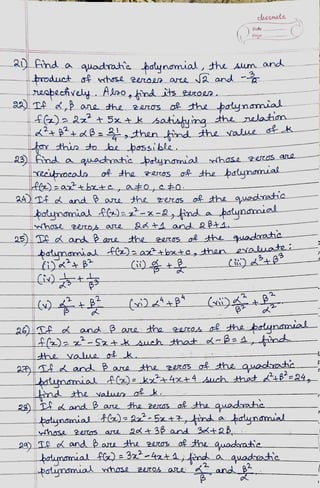 classmate
Date
Page
21) Find a quadratic polynomial, the sum and
product of whose zeroes are √2 and -3/2
respectively. Also, find its zeroes.
22) If α, β are the zeros of the polynomial
f(x) = 2x² + 5x + k satisfying the relation
α² + β² + αβ = 21/4, then find the value of k
for this to be possible.
23) Find a quadratic polynomial whose zeros are
reciprocals of the zeros of the polynomial
f(x) = ax² + bx + c, a≠0, c≠0.
24) If α and β are the zeros of the quadratic
polynomial f(x) = x² - x - 2, find a polynomial
whose zeros are 2α+1 and 2β+1.
25) If α and β are the zeros of the quadratic
polynomial f(x) = ax² + bx + c, then evaluate:
(i) α² + β² (ii) α/β + β/α (iii) α³ + β³
(iv) 1/α³ + 1/β³
(v) α²/β + β²/α (vi) α⁴ + β⁴ (vii) α²/β² + β²/α²
26) If α and β are the zeros of the polynomial
f(x) = x² - 5x + k such that α - β = 1, find
the value of k.
27) If α and β are the zeros of the quadratic
polynomial f(x) = kx² + 4x + 4 such that α² + β² = 24,
find the values of k.
28) If α and β are the zeros of the quadratic
polynomial f(x) = 2x² - 5x + 7, find a polynomial
whose zeros are 2α + 3β and 3α + 2β.
29) If α and β are the zeros of the quadratic
polynomial f(x) = 3x² - 4x + 1, find a quadratic
polynomial whose zeros are α²/β and β²/α.